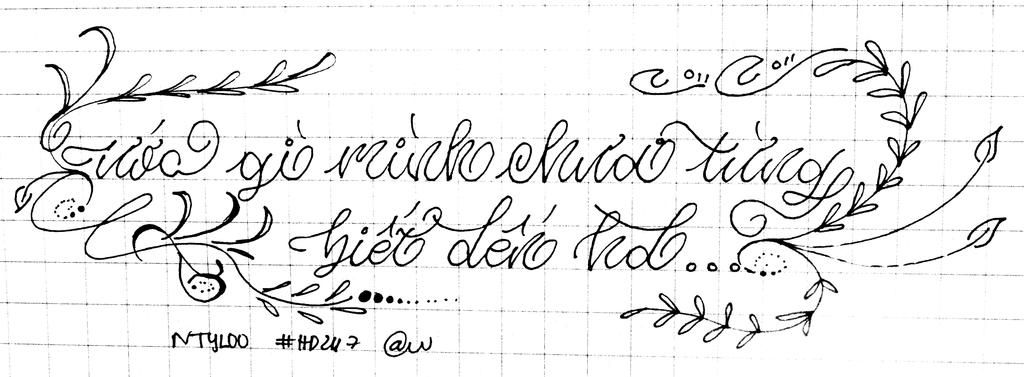 Ước gì mình chưa từng
biết đến họ...
NTYLOO #HD247 @w